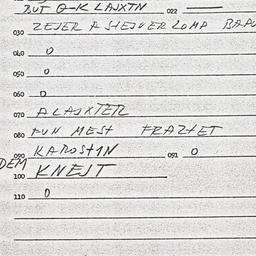 BUT Q-K LAJXTN 022
030 ZEJER A STEJNER LOMP BAPU
040 0
050 0
060 0
070 ALAJXTER
080 FUN MESt FRAZtET
090 KAROSt1N 091 0
DEM
100 KNEJT
110 0